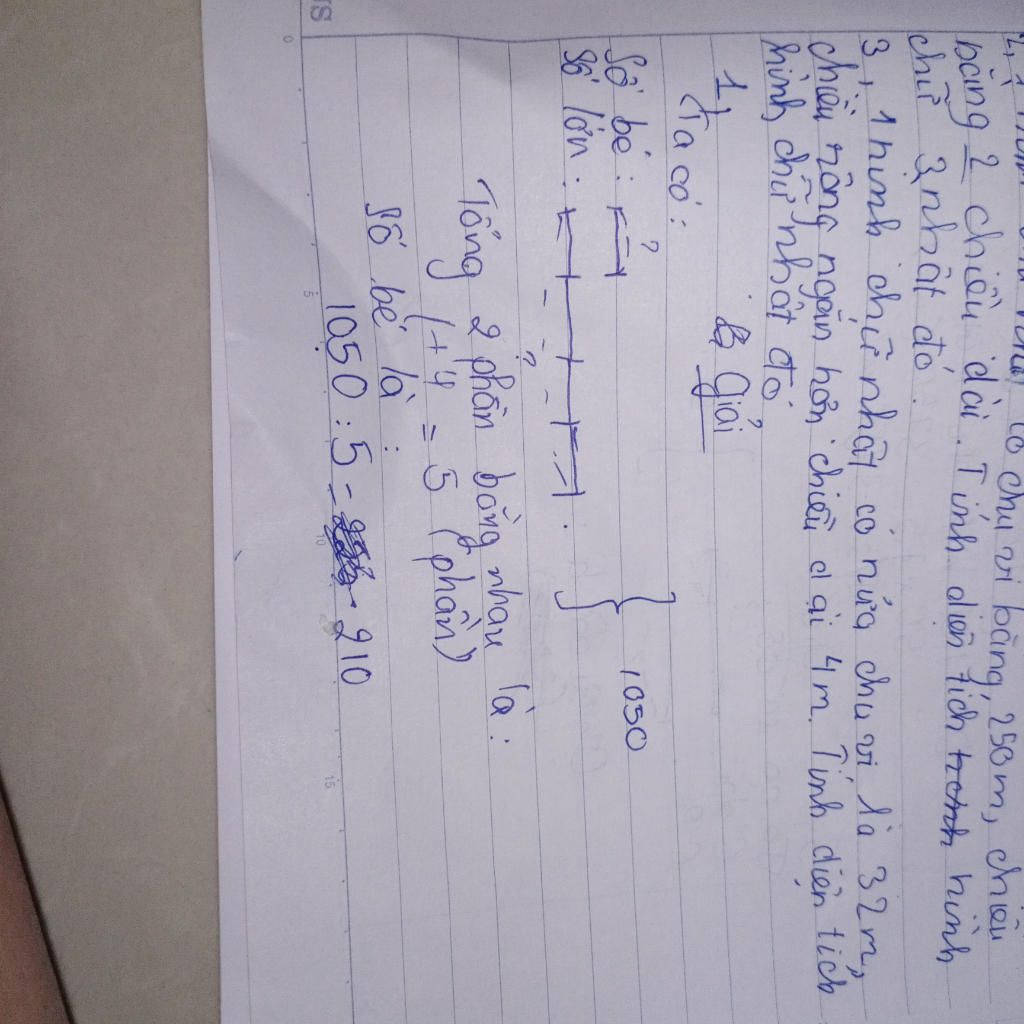 bằng 2 chiều dài. Tính diện tích hình
chữ nhật đó.
3, 1 hình chữ nhật có nửa chu vi là 32m,
chiều rộng ngắn hơn chiều dài 4m. Tính diện tích
hình chữ nhật đó.
Giải
1,
Ta có:
Số bé: ? 1050
Số lớn: ?
Tổng 2 phần bằng nhau là:
1 + 4 = 5 (phần)
Số bé là:
1050 : 5 = 210
0 5 10 15